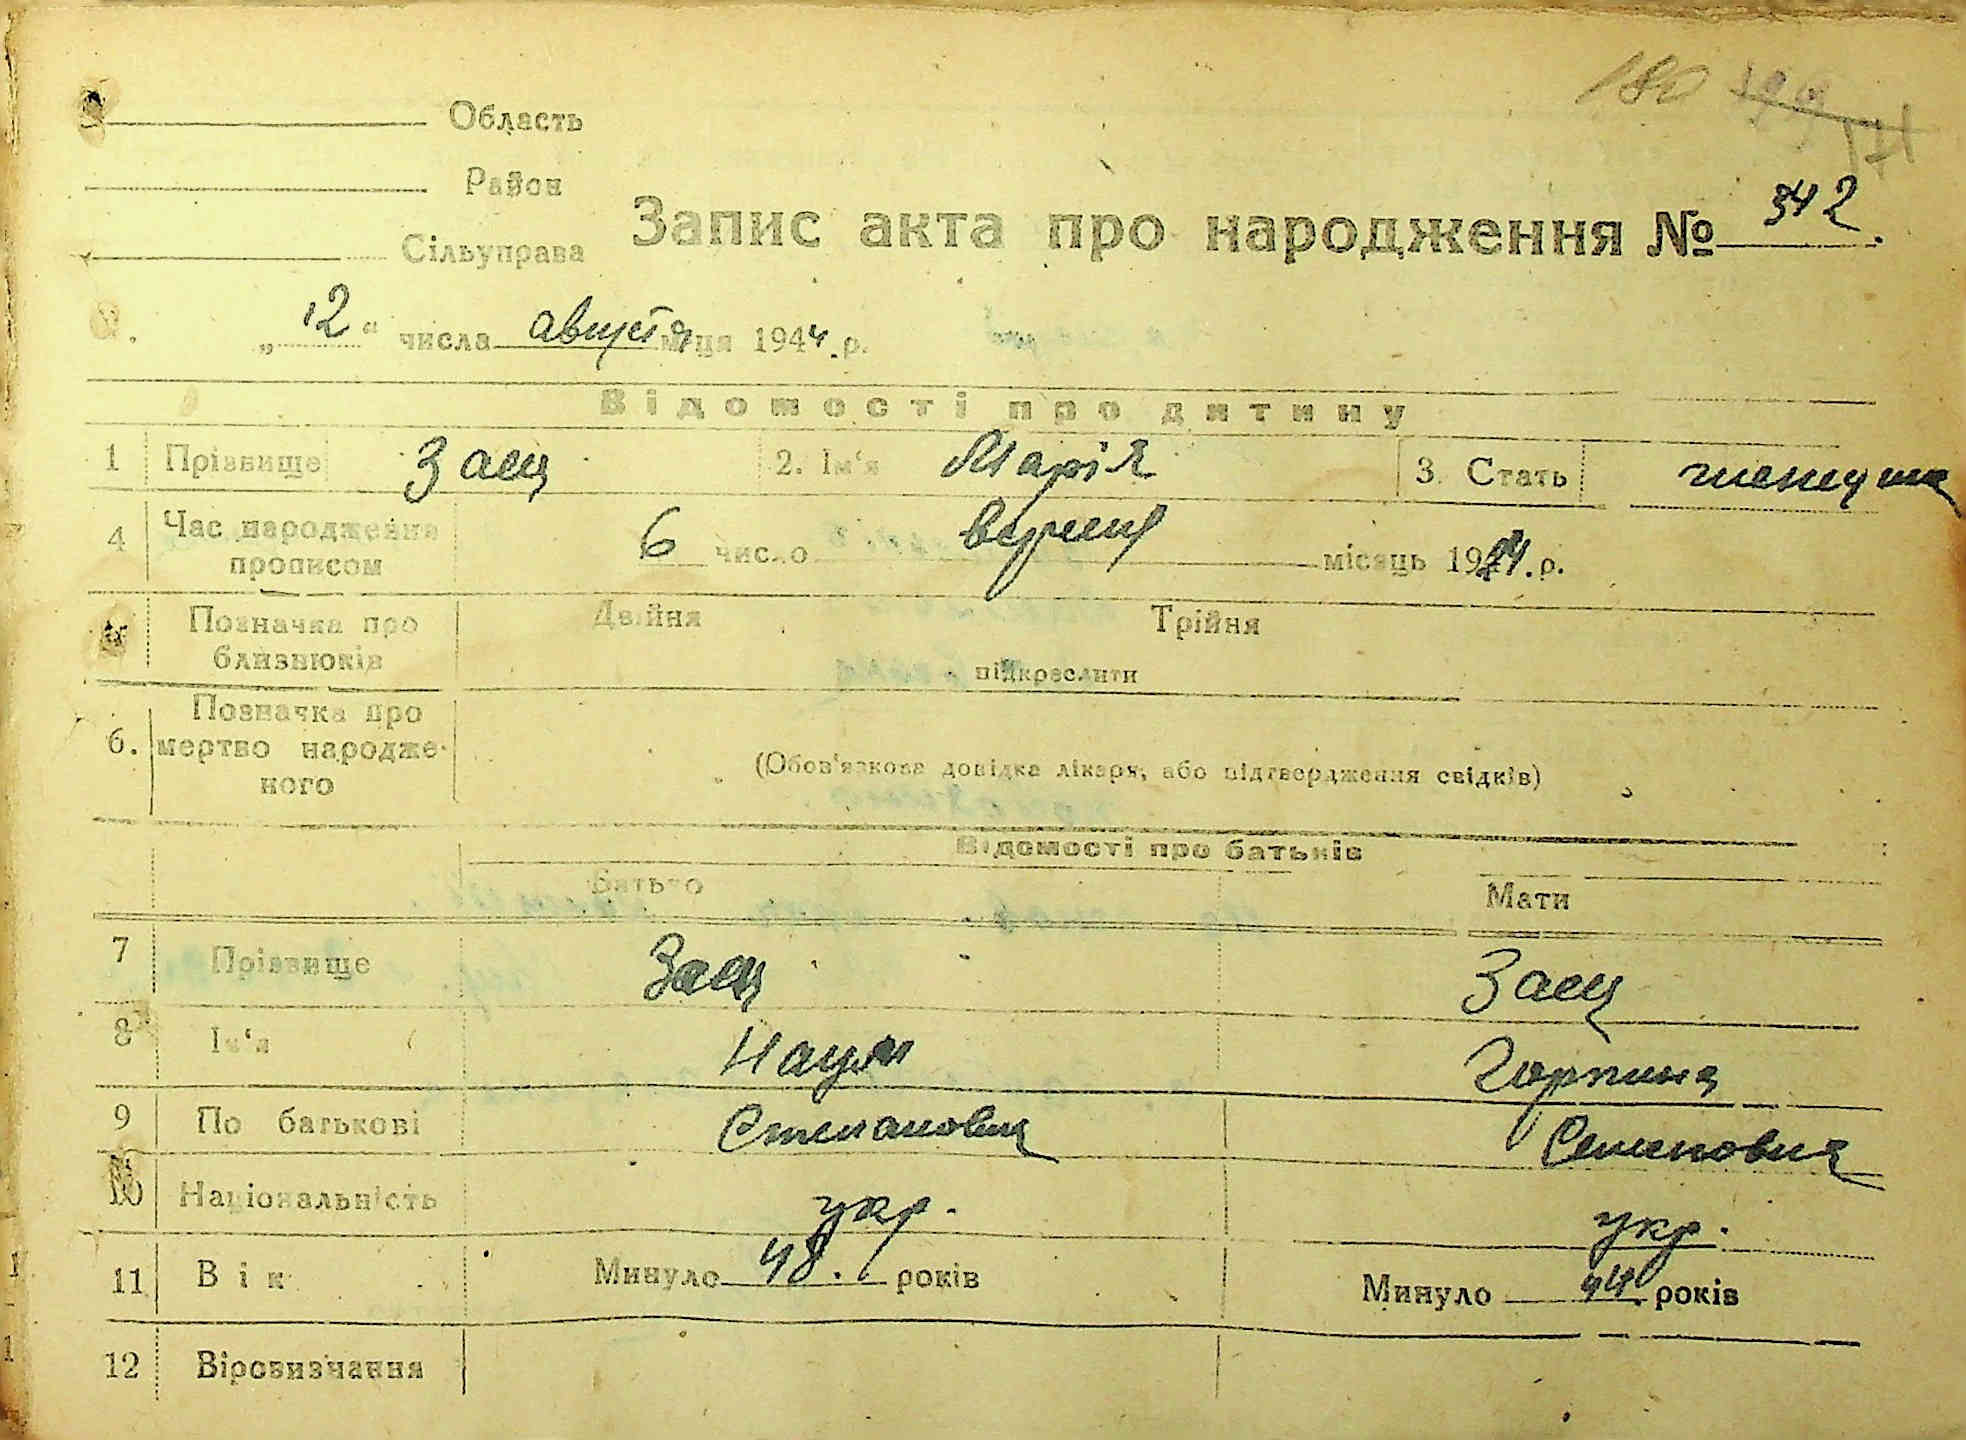 180
Область
Район
Сільуправа
Запис акта про народження № 342.
„12“ числа августа м-ця 1944 р.
Відомості про дитину
1 Прізвище Заец 2. Ім'я Марія 3. Стать
4 Час народження прописом 6 число місяць 19 р.
Позначка про близнюків Двійня Трійня
підкреслити
6. Позначка про мертво народже-
ного
(Обов'язкова довідка лікаря, або підтвердження свідків)
Відомості про батьків
Батько Мати
7 Прізвище Заец Заец
8 Ім'я Наум Горпина
9 По батькові Степанович Семеновна
10 Національність укр. укр.
11 Вік Минуло 48. років Минуло 44. років
12 Віровизнання